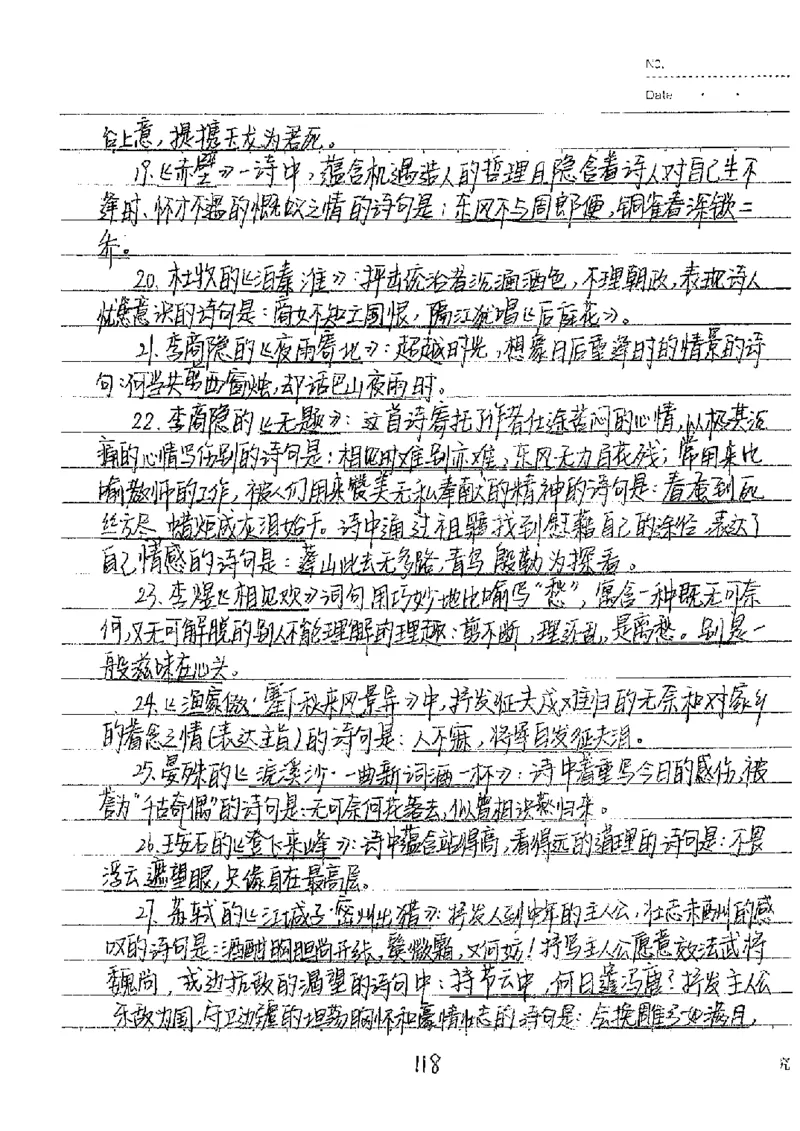 No.
Date
台上意，提携玉龙为君死。
19.《赤壁》一诗中，蕴含机遇造人的哲理且隐含着诗人对自己生不
逢时、怀才不遇的慨叹之情的诗句是：东风不与周郎便，铜雀春深锁二
乔。
20. 杜牧的《泊秦淮》：抨击统治者沉湎酒色，不理朝政，表现诗人
忧患意识的诗句是：商女不知亡国恨，隔江犹唱《后庭花》。
21. 李商隐的《夜雨寄北》：超越时光，想象日后重逢时的情景的诗
句：何当共剪西窗烛，却话巴山夜雨时。
22. 李商隐的《无题》：这首诗寄托了作者仕途苦闷的心情，以极其沉
痛的心情写伤别的诗句是：相见时难别亦难，东风无力百花残；常用来比
喻教师的工作，被人们用来赞美无私奉献的精神的诗句是：春蚕到死
丝方尽 蜡炬成灰泪始干。诗中通过祖骚找到慰藉自己的途径，表达了
自己情感的诗句是：蓬山此去无多路，青鸟殷勤为探看。
23. 李煜《相见欢》词句用巧妙地比喻写“愁”，寓含一种既无可奈
何，又无可解脱的别人不能理解的理趣：剪不断，理还乱，是离愁。别是一
般滋味在心头。
24.《渔家傲·塞下秋来风景异》中，抒发征夫戍难归的无奈和对家乡
的眷念之情（表达主旨）的诗句是：人不寐，将军白发征夫泪。
25. 晏殊的《浣溪沙·一曲新词酒一杯》：诗中着重写今日的感伤，被
誉为“千古奇偶”的诗句是：无可奈何花落去，似曾相识燕归来。
26. 王安石的《登飞来峰》：诗中蕴含站得高，看得远的道理的诗句是：不畏
浮云遮望眼，只缘身在最高层。
27. 苏轼的《江城子·密州出猎》：抒发人到中年的主人公，壮志未酬的感
叹的诗句是：酒酣胸胆尚开张，鬓微霜，又何妨！抒写主人公愿意效法武将
魏尚，戍边抗敌的渴望的诗句中：持节云中，何日遣冯唐？抒发主人公
杀敌为国，守卫边疆的坦荡胸怀和豪情壮志的诗句是：会挽雕弓如满月，
118